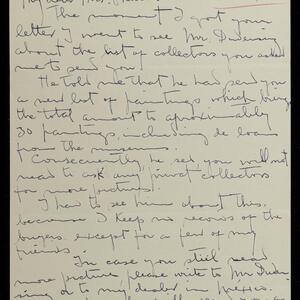 My dear Mrs.
The moment I got your
letter I went to see Mr Duvening
about the list of collectors you asked
me to send you!
He told me that he had send you
a new list of paintings which brings
the total amount to aproximally
30 paintings, including de loans
from the museums.
Consecuently, he sed, you will not
need to ask any privat collectors
for more pictures.
I had to see him about this,
because I keep no records of the
buyers, except for a few of my
friends.
In case you still need
more picture please write to Mr Duve-
ning or to my dealer in Mexico.